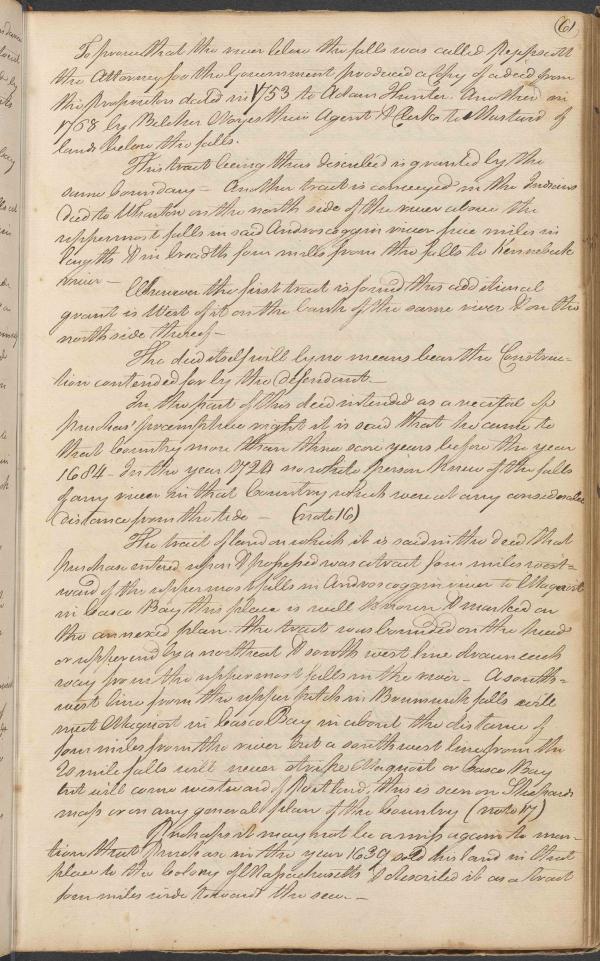 61
To prove that the river below the falls was called Pejepscott
the Attorney for the Government produced a Copy of a deed from
the Proprietors dated in 1753 to Adam Hunter. Another in
1768 by Belcher Noyes their Agent & Clerke to Mustard of
lands below the falls.
This tract being thus described is granted by the
same boundary - Another tract is conveyed in the Indians
Deed to Wharton on the north side of the river above the
uppermost falls in said Androscoggin river five miles in
length & in breadth four miles from the falls to Kennebeck
river -
Wherever the first tract is found this additional
grant is West of it on the bank of the same river & on the
north side thereof -
The deed itself will by no means bear the Construc-
tion contended for by the defendant. -
In the part of this deed intended as a recital of
Purchas' preemptive right it is said that he came to
that Country more than three score years before the year
1684 - In the year 1724 no white person knew of the falls
of any river in that Country which were at any considerable
distance from the tide - (note 16)
The tract of land on which it is said in the deed that
purchase entered upon & possessed was a tract four miles west-
ward of the uppermost falls in Androscoggin river to Maquoit
in Casco Bay this place is well known & marked on
the annexed plan. the tract was bounded on the head
or upper end by a northeast & south west line drawn each
way from the uppermost falls in the river - A south-
west line from the upper pitch in Brunswick falls will
meet Maquoit in Casco Bay in about the distance of
four miles from the river but a southwest line from the
20 mile falls will never strike Maquoit or Casco Bay
but will come westward of Portland, this is seen on Shepards
map or on any general plan of the Country (note 17)
Perhaps it may not be amiss again to men-
tion that Purchase in the year 1639 sold his land in that
place to the Colony of Massachusetts & described it as a tract
four miles wide toward the sea. -